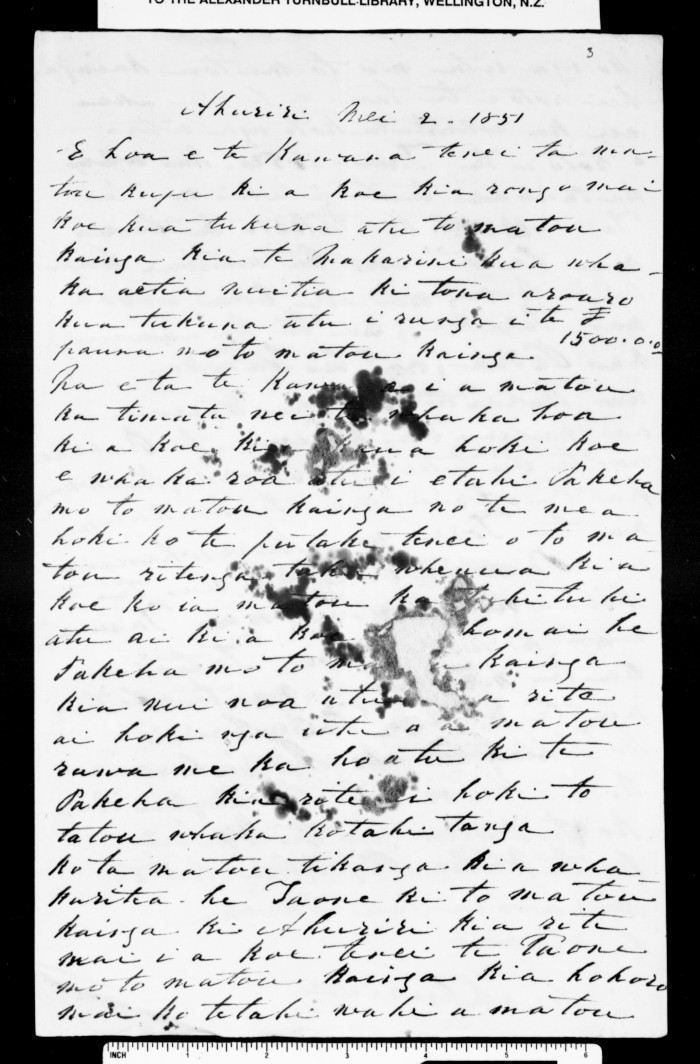 TO THE ALEXANDER TURNBULL LIBRARY, WELLINGTON, N.Z.
3
Ahuriri Mei 2. 1851
E hoa e te Kawana tenei ta ma-
tou kupu ki a koe kia rongo mai
koe kua tukuna atu to matou
kainga kia te Makarini kua wha-
ka aetia nuitia ki tona aroaro
kua tukuna atu i runga i te £
1500.0.0
pauna mo to matou kainga
Na e ta te Kawana i a matou
ka timata nei te whaka hoa
ki a koe, kia hoki koe
e whaka roa atu i etahi Pakeha
mo to matou kainga no te mea
hoki ko te putake tenei o to ma
tou ritenga tuku whenua kia
koe ko ia matou ka tuhituhi
atu ai ki a koe homai he
Pakeha mo to ma kainga
kia nui noa atu a rite
ai hoki nga utu o a matou
rawa me ka hoatu ki te
Pakeha kia rite ai hoki to
tatou whaka kotahi tanga
ko ta matou tikanga kia wha
karitea he Taone ki to matou
kainga ki Ahuriri kia rite
mai i a koe tenei te Taone
mo to matou kainga kia hohoro
mai ko tetahi wahi a matou
INCH 1 2 3 4 5 6